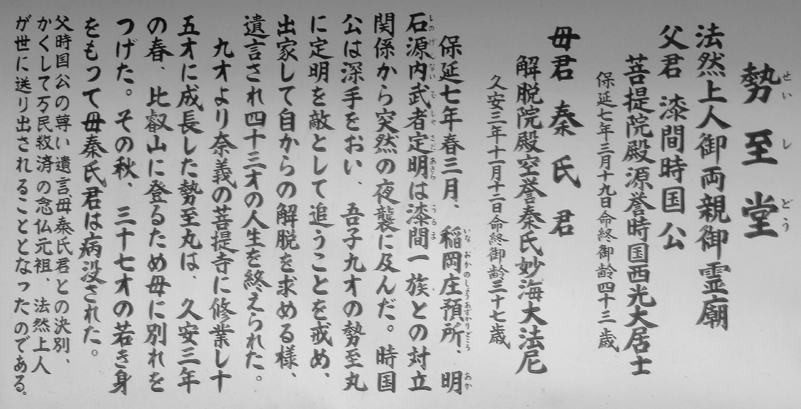 勢至堂
法然上人御両親御霊廟
父君 漆間時国公
菩提院殿源誉時国西光大居士
保延七年三月十九日命終御齢四十三歳
母君 秦氏君
解脱院殿空誉秦氏妙海大法尼
久安三年十一月十二日命終御齢三十七歳
保延七年春三月、稲岡庄預所、明
石源内武者定明は漆間一族との対立
関係から突然の夜襲に及んだ。時国
公は深手をおい、吾子九才の勢至丸
に定明を敵として追うことを戒め、
出家して自からの解脱を求める様、
遺言され四十三才の人生を終えられた。
九才より奈義の菩提寺に修業し十
五才に成長した勢至丸は、久安三年
の春 比叡山に登るため母に別れを
つげた。その秋、三十七才の若き身
をもって母秦氏君は病没された。
父時国公の尊い遺言母秦氏君との決別、
かくして万民救済の念仏元祖、法然上人
が世に送り出されることとなったのである。